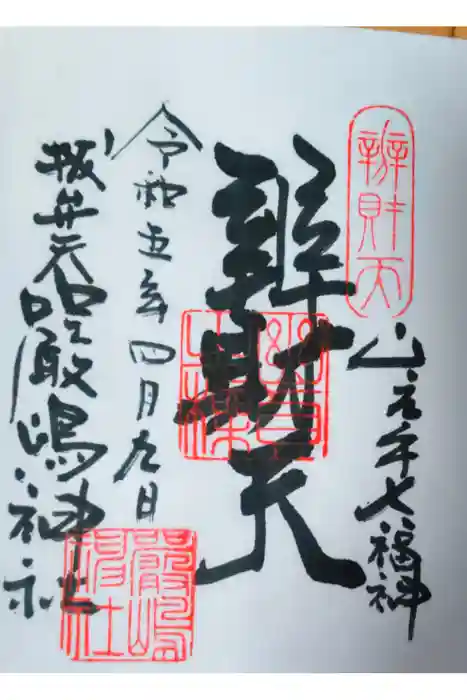 辨財天
山之手七福神
辨財天
令和五年四月九日
抜弁天嚴嶋神社
嚴嶋神社